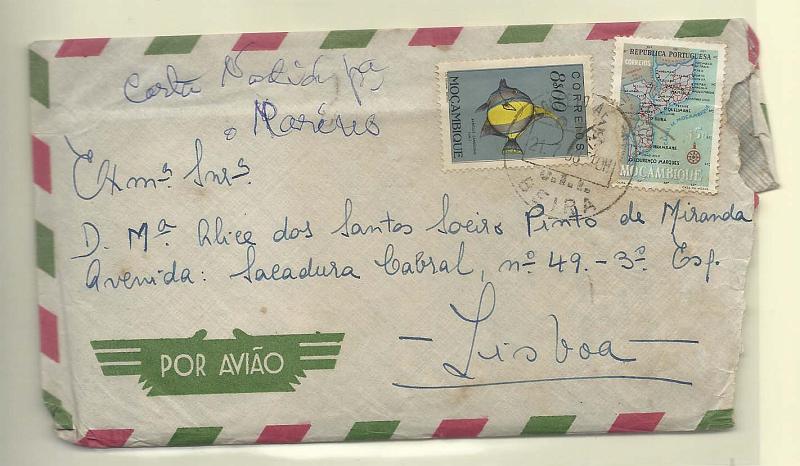 Carta
o Marino
Exmª Snrª
D. Mª Alice dos Santos Soeiro Pinto de Miranda
Avenida: Sacadura Cabral, nº 49.-3º Esq.
-Lisboa-
POR AVIÃO
MOÇAMBIQUE
8$00
CORREIOS
REPÚBLICA PORTUGUESA
CORREIOS
BEIRA
INHAMBANE
LOURENÇO MARQUES
MOÇAMBIQUE
BEIRA